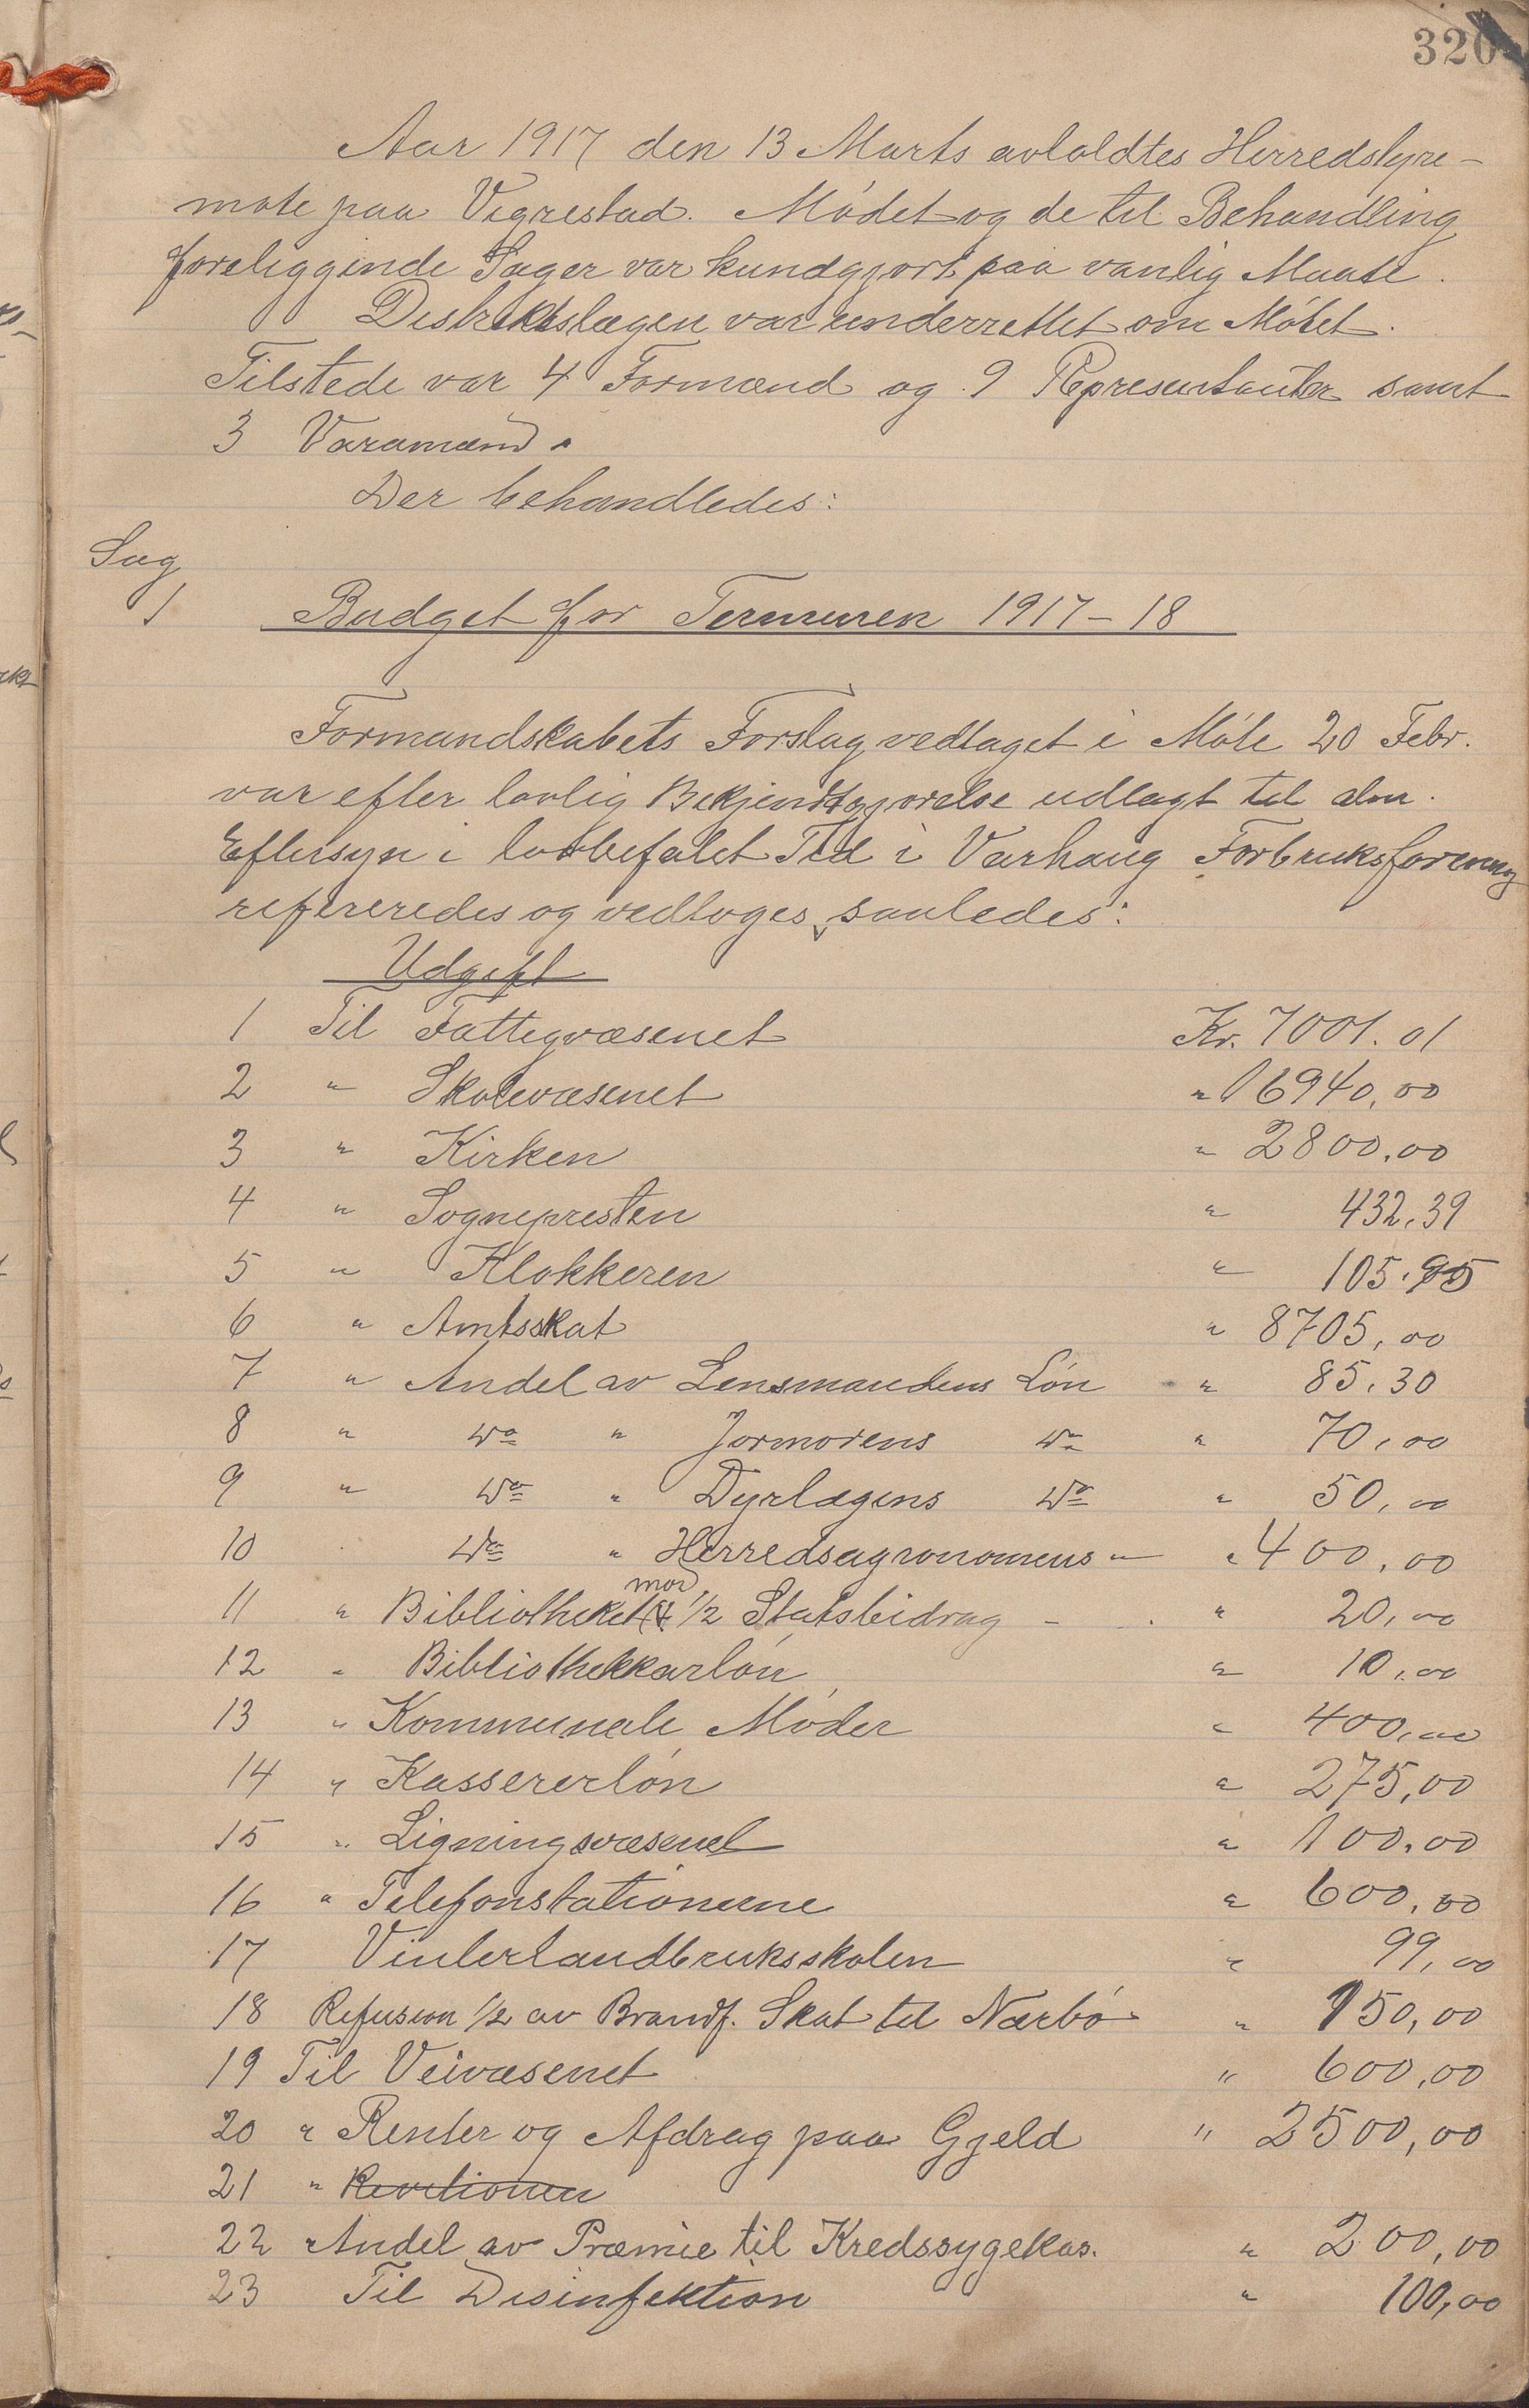 320
Aar 1917 den 13 Marts avholdtes Herredstyre-
møte paa Vigrestad. Mødet og de til Behandling
foreliggende Sager var kundgjort paa vanlig Maate.
Distriktslægen var underrettet om Møtet.
Tilstede var 4 Formænd og 9 Representanter samt
3 Varamænd.
Der behandledes:
Sag
1 Budget for Terminen 1917-18
Formandskabets Forslag vedtaget i Møte 20 Febr.
var efter lovlig Bekjendtgjørelse udlagt til alm.
Eftersyn i lovbefalet Tid i Varhaug Forbruksforening
refereredes og vedtoges saaledes:
Udgift
1 Til Fattigvæsenet Kr. 7001.01
2 " Skolevæsenet " 16940,00
3 " Kirken " 2800.00
4 " Sognepresten " 432,39
5 " Klokkeren " 105.95
6 " Amtsskat " 8705,00
7 " Andel av Lensmandens Løn " 85,30
8 " Do " Jormorens Do " 70,00
9 " Do " Dyrlægens Do " 50,00
10 Do " Herredsagronomens " " 400,00
11 " Bibliotheket mod 1/2 Statsbidrag - " 20,00
12 " Bibliothekkarløn " 10,00
13 " Kommunale Møder " 400,00
14 " Kassererløn " 275,00
15 " Ligningsvæsenet " 100,00
16 " Telefonstationerne " 600,00
17 Vinterlandbruksskolen " 99,00
18 Refusion 1/2 av Brandf. Skat til Nærbø " 150,00
19 Til Veivæsenet " 600,00
20 " Renter og Afdrag paa Gjeld " 2500,00
21 " Revitionen
22 Andel av Præmie til Kredssygekas. " 200,00
23 Til Disinfektion " 100,00